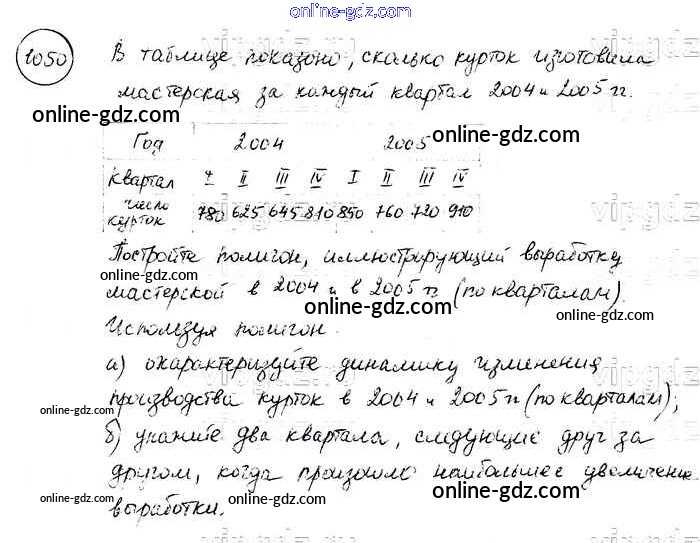 online-gdz.com
1050 В таблице показано, сколько курток изготовила
мастерская за каждый квартал 2004 и 2005 гг.
online-gdz.com online-gdz.com
Год 2004 2005
квартал I II III IV I II III IV
число
курток 780 625 645 810 850 760 720 910
Постройте полигон, иллюстрирующий выработку
online-gdz.com
мастерской в 2004 и в 2005 гг (по кварталам).
online-gdz.com
Используя полигон.
а) охарактеризуйте динамику изменения
производства курток в 2004 и 2005 гг (по кварталам);
online-gdz.com online-gdz.com
б) укажите два квартала, следующие друг за
другом, когда произошло наибольшее увеличение
online-gdz.com online-gdz.com
выработки.